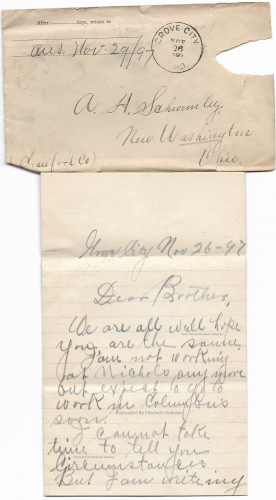 After ______ days, return to
ans. Nov. 29/97
GROVE CITY
NOV
26
A. A.
New Washington
Ohio.
(Crawford Co)
Grove City Nov 26-97
Dear Brother,
We are all well hope
you are the same.
I am not working
at Nichols any more
but expect to go to
work in Columbus
soon.
I cannot take
time to tell you
Circumstances
But I am writing